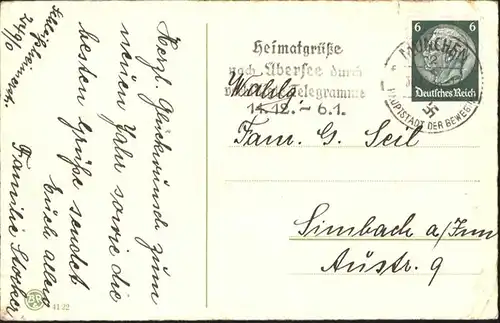 Herzl. Glückwunsch zum
neuen Jahr sowie die
besten Grüße sendet
Euch allen
Familie Stocker
Heimatgrüße
nach Übersee durch
Telegramme
14.12. – 6.1.
MÜNCHEN
HAUPTSTADT DER BEWEGUNG
6 6
Deutsches Reich
Fam. G. Seil
Simbach a/Inn
Austr. 9
BR
11 22